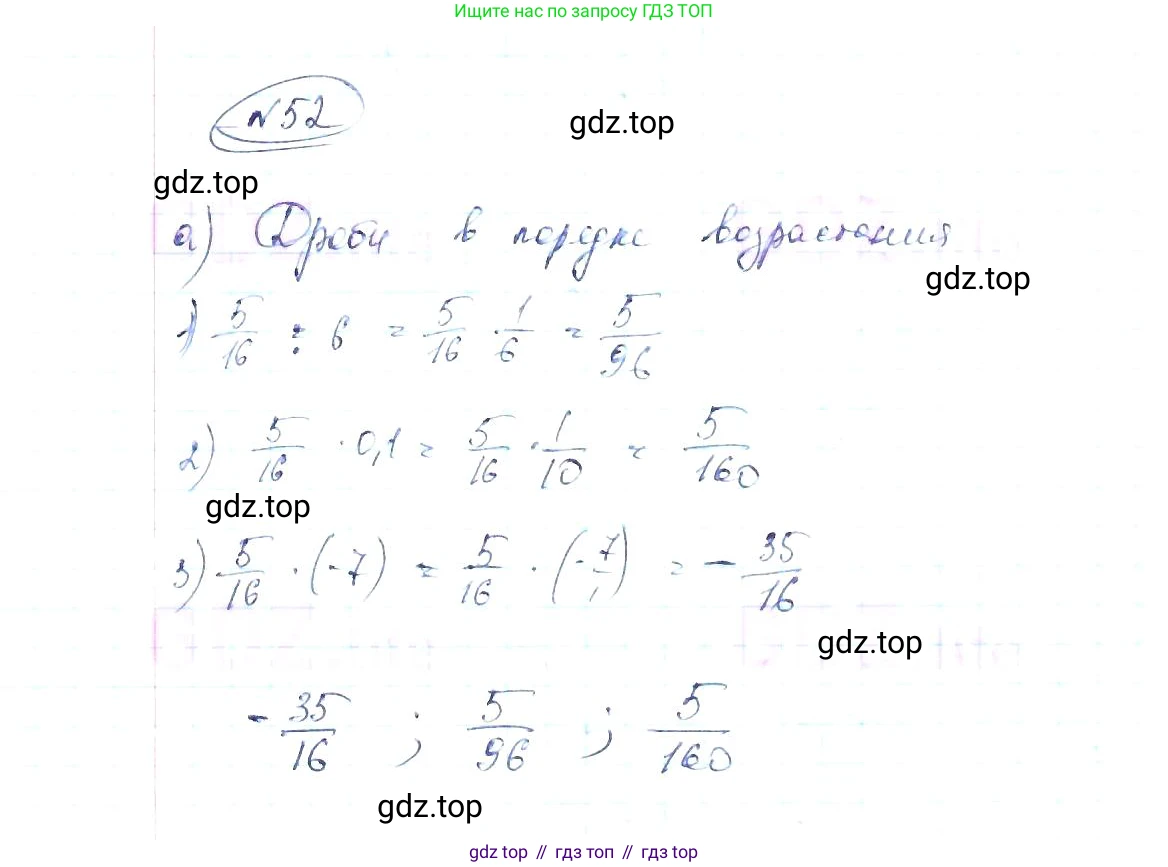 Ищите нас по запросу ГДЗ ТОП
№52
gdz.top
gdz.top
а) Дроби в порядке возрастания
gdz.top
1) 5/16 : 6 = 5/16 · 1/6 = 5/96
2) 5/16 · 0,1 = 5/16 · 1/10 = 5/160
gdz.top
3) 5/16 · (-7) = 5/16 · (-7/1) = - 35/16
gdz.top
- 35/16 ; 5/96 ; 5/160
gdz.top
gdz top // гдз топ // гдз top